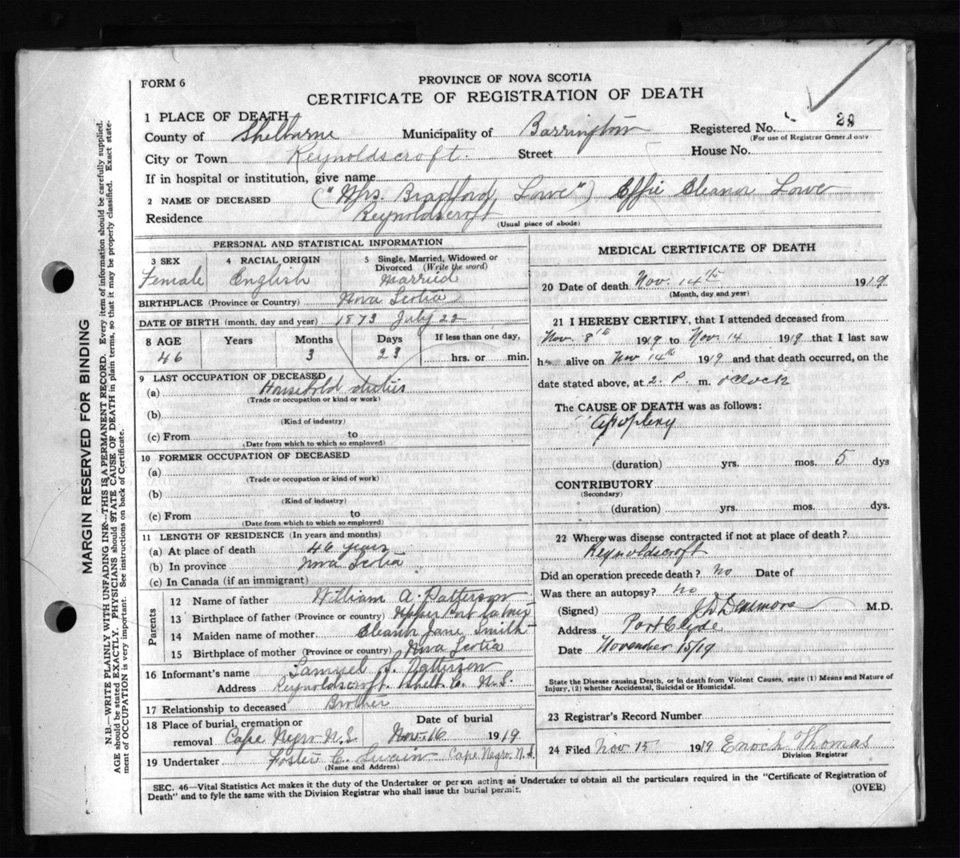 FORM 6
PROVINCE OF NOVA SCOTIA
CERTIFICATE OF REGISTRATION OF DEATH
1 PLACE OF DEATH
County of Shelburne Municipality of Barrington Registered No. 28
(For use of Registrar General only)
City or Town Reynoldscroft. Street House No.
If in hospital or institution, give name
2 NAME OF DECEASED ("Mrs. Bradford Lowe") Effie Eleanor Lowe
Residence Reynoldscroft
(Usual place of abode)
PERSONAL AND STATISTICAL INFORMATION
3 SEX 4 RACIAL ORIGIN 5 Single, Married, Widowed or Divorced (Write the word)
Female English Married
BIRTHPLACE (Province or Country) Nova Scotia
DATE OF BIRTH (month, day and year) 1873 July 22
8 AGE Years Months Days If less than one day,
46 3 23 hrs. or min.
9 LAST OCCUPATION OF DECEASED
(a) Household duties
(Trade or occupation or kind or work)
(b)
(Kind of industry)
(c) From to
(Date from which to which so employed)
10 FORMER OCCUPATION OF DECEASED
(a)
(Trade or occupation or kind of work)
(b)
(Kind of industry)
(c) From to
(Date from which to which so employed)
11 LENGTH OF RESIDENCE (In years and months)
(a) At place of death 46 years
(b) In province Nova Scotia
(c) In Canada (if an immigrant)
Parents
12 Name of father William A. Patterson
13 Birthplace of father (Province or country) Upper Port
14 Maiden name of mother Eleanor Jane Smith
15 Birthplace of mother (Province or country) Nova Scotia
16 Informant's name Samuel S. Patterson
Address Reynoldscroft Shelb. Co. N.S.
17 Relationship to deceased Brother
18 Place of burial, cremation or removal Cape Negro N.S. Date of burial Nov. 16 1919
19 Undertaker Foster C. Swain Cape Negro, N.S.
(Name and Address)
MEDICAL CERTIFICATE OF DEATH
20 Date of death Nov. 14th 1919
(Month, day and year)
21 I HEREBY CERTIFY, that I attended deceased from
Nov. 8th 1919 to Nov. 14 1919 that I last saw
h alive on Nov 14th 1919 and that death occurred, on the
date stated above, at 2. P. m. o'clock
The CAUSE OF DEATH was as follows:
Apoplexy
(duration) yrs. mos. 5 dys
CONTRIBUTORY
(Secondary)
(duration) yrs. mos. dys.
22 Where was disease contracted if not at place of death?
Reynoldscroft
Did an operation precede death? no Date of
Was there an autopsy? no
(Signed) J D Densmore M.D.
Address Port Clyde
Date November 15/19
State the Disease causing Death, or in death from Violent Causes, state (1) Means and Nature of
Injury, (2) whether Accidental, Suicidal or Homicidal.
23 Registrar's Record Number
24 Filed Nov 15 1919 Enoch Thomas
Division Registrar
SEC. 46—Vital Statistics Act makes it the duty of the Undertaker or person acting as Undertaker to obtain all the particulars required in the "Certificate of Registration of
Death" and to fyle the same with the Division Registrar who shall issue the burial permit.
(OVER)
MARGIN RESERVED FOR BINDING
N.B.—WRITE PLAINLY WITH UNFADING INK—THIS IS A PERMANENT RECORD. Every item of information should be carefully supplied.
AGE should be stated EXACTLY. PHYSICIANS should STATE CAUSE OF DEATH in plain terms, so that it may be properly classified. Exact statement of OCCUPATION is very important. See instructions on back of Certificate.